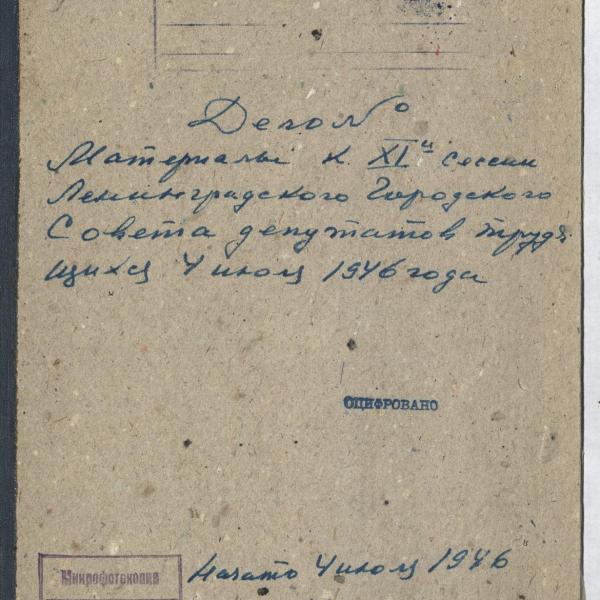 Дело №
Материалы к XI й сессии
Ленинградского Городского
Совета депутатов трудя
щихся 4 июля 1946 года
ОЦИФРОВАНО
Микрофотокопия
Начато 4 июля 1946